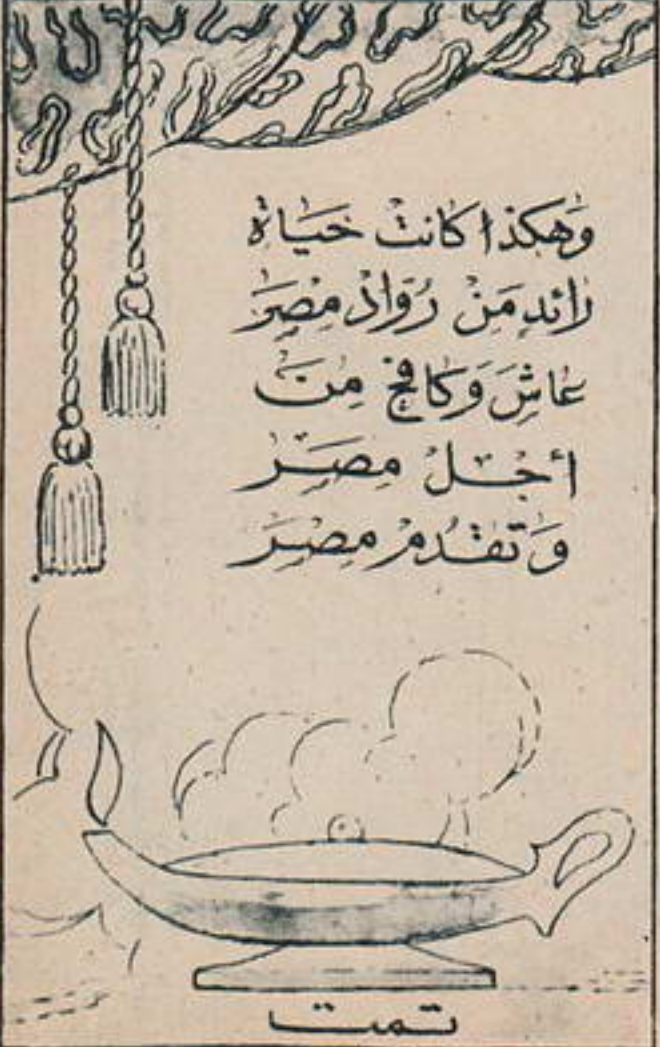 وَهكذا كانتْ حَيَاة
رائدٍ مَنْ رُوَّادْ مِصرَ
عاشَ وَكافح مِنَ
أجْلْ مِصَر
وَتقدُمْ مِصرَ
تمت